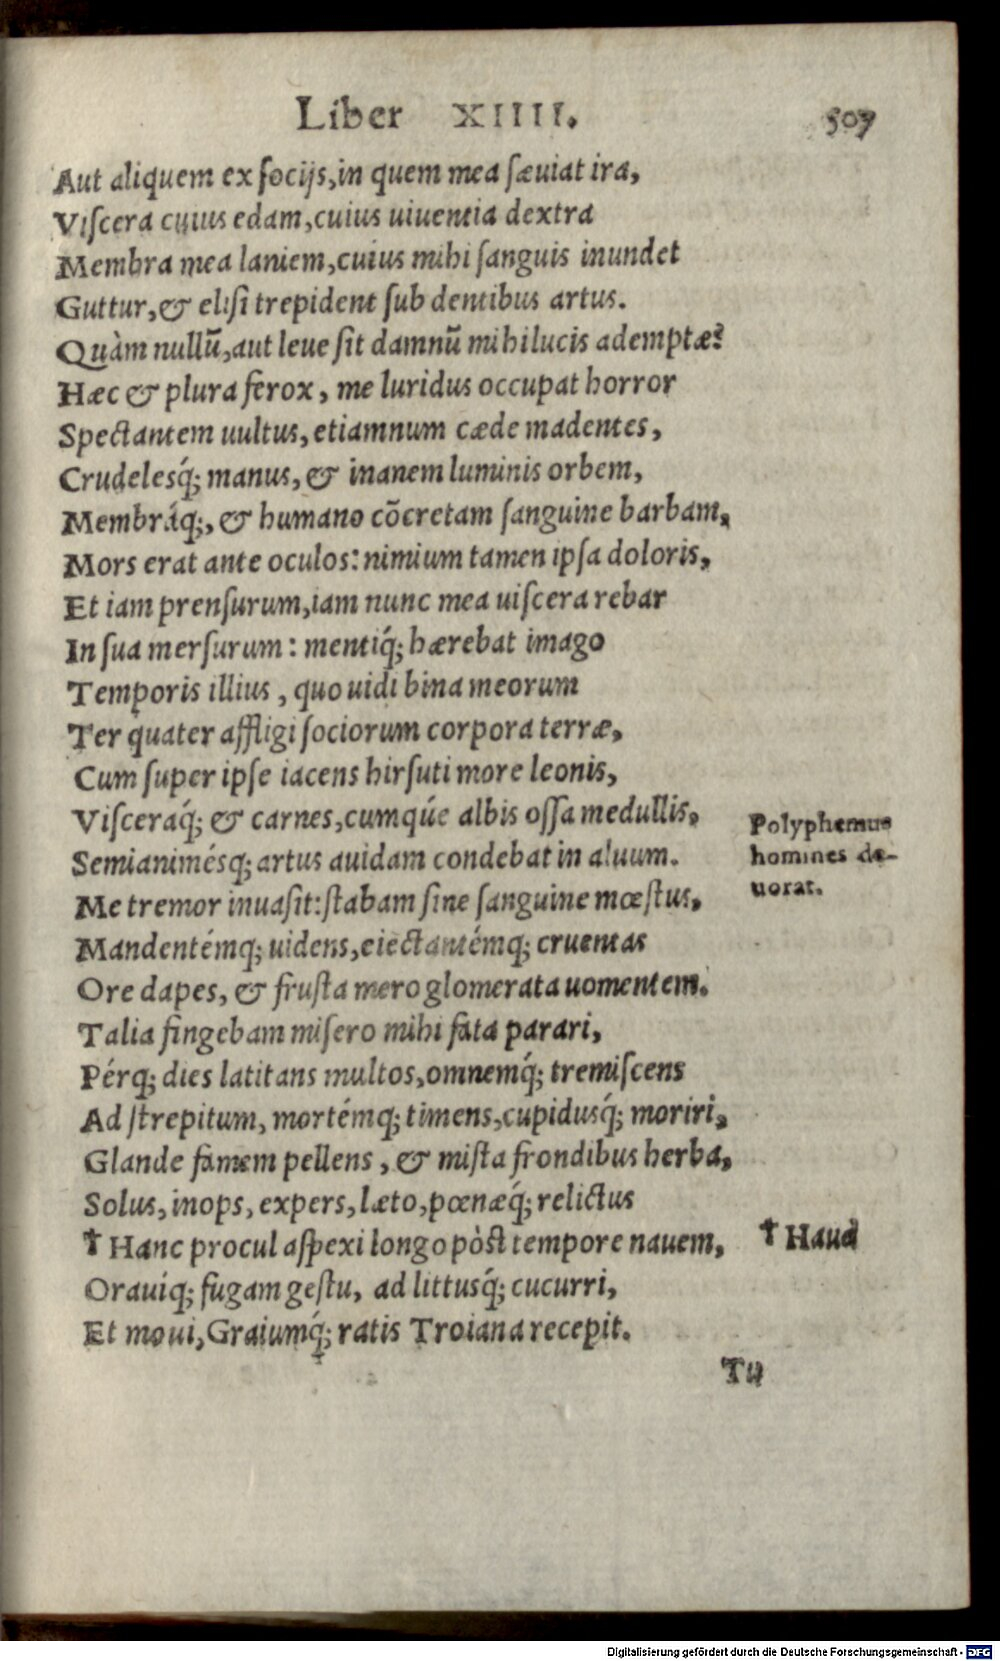 Liber XIIII. 507
Aut aliquem ex socijs, in quem mea sæuiat ira,
Viscera cuius edam, cuius uiuentia dextra
Membra mea laniem, cuius mihi sanguis inundet
Guttur, & elisi trepident sub dentibus artus.
Quàm nullũ, aut leue sit damnũ mihi lucis ademptæ?
Hæc & plura ferox, me luridus occupat horror
Spectantem uultus, etiamnum cæde madentes,
Crudelesq́; manus, & inanem luminis orbem,
Membráq;, & humano cõcretam sanguine barbam,
Mors erat ante oculos: nimium tamen ipsa doloris,
Et iam prensurum, iam nunc mea uiscera rebar
In sua mersurum: mentiq́; hærebat imago
Temporis illius, quo uidi bina meorum
Ter quater affligi sociorum corpora terræ,
Cum super ipse iacens hirsuti more leonis,
Visceraq́; & carnes, cumqúe albis ossa medullis,
Semianimésq; artus auidam condebat in aluum.
Me tremor inuasit: stabam sine sanguine mœstus,
Mandentémq; uidens, eiectantémq; cruentas
Ore dapes, & frusta mero glomerata uomentem.
Talia fingebam misero mihi fata parari,
Pérq; dies latitans multos, omnemq́; tremiscens
Ad strepitum, mortémq; timens, cupidusq́; moriri,
Glande famem pellens, & mista frondibus herba,
Solus, inops, expers, læto, pœnæq́; relictus
† Hanc procul aspexi longo pòst tempore nauem,
Orauiq; fugam gestu, ad littusq́; cucurri,
Et moui, Graiumq́; ratis Troiana recepit.
Tu
Polyphemus
homines de-
uorat.
† Haud
Digitalisierung gefördert durch die Deutsche Forschungsgemeinschaft - DFG